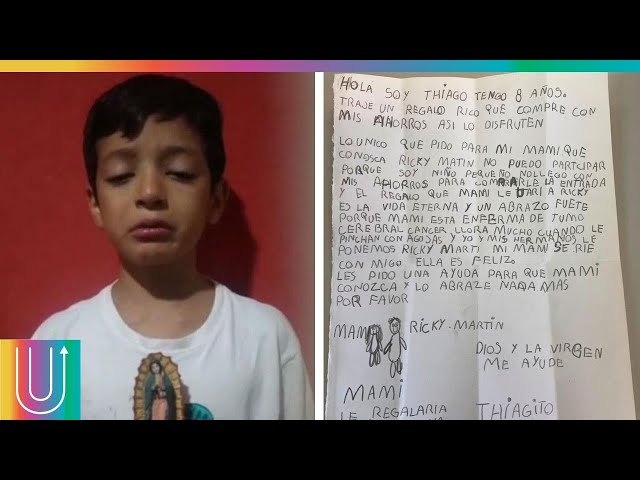 HOLA SOY THIAGO TENGO 8 AÑOS.
TRAJE UN REGALO RICO QUE COMPRE CON
MIS AHORROS ASI LO DISFRUTEN
LO UNICO QUE PIDO PARA MI MAMI QUE
CONOSCA RICKY MATIN NO PUEDO PARTCIPAR
PORQUE SOY NIÑO PEQUEÑO NOLLEGO CON
MIS AHORROS PARA COMRARLE LA ENTRADA
Y EL REGALO QUE MAMI LE DARI A RICKY
ES LA VIDA ETERNA Y UN ABRAZO FUETE
PORQUE MAMI ESTA ENFERMA DE TUMO
CEREBRAL CANCER LLORA MUCHO CUANDO LE
PINCHAN CON AGUJAS Y YO Y MIS HERMANOS LE
PONEMOS RICKY MARTI MI MAMI SE RIE
CON MIGO ELLA ES FELIZ.
LES PIDO UNA AYUDA PARA QUE MAMI
CONOZCA Y LO ABRAZE NADA MAS
POR FAVOR
MAMI RICKY.MARTIN
DIOS Y LA VIRGEN
ME AYUDE
MAMI
LE REGALARIA
THIAGITO
U